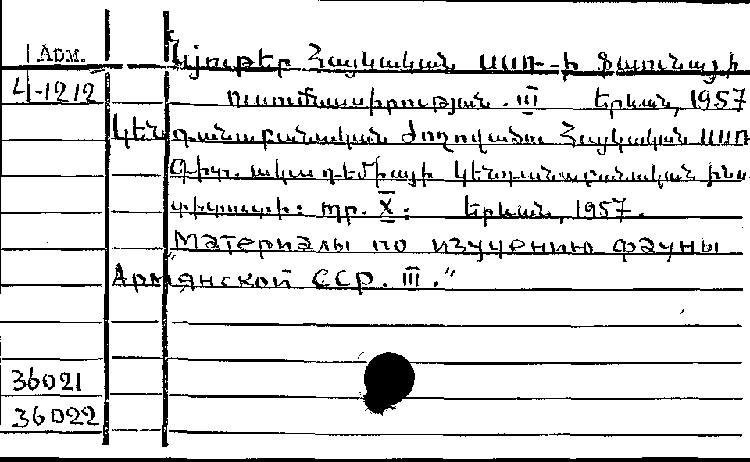 Арм.
Նյութեր Հայկական ՍՍՌ-ի Ֆաունայի
4-1212
ուսումնասիրության. III Երևան, 1957
Կենդանաբանական ժողովածու Հայկական ՍՍՌ
Գիտ. ակադեմիայի կենդանաբանական ինս
տիտուտի: пр. X: Երևան, 1957.
„Материалы по изучению фауны
Армянской ССР. III."
36021
36022